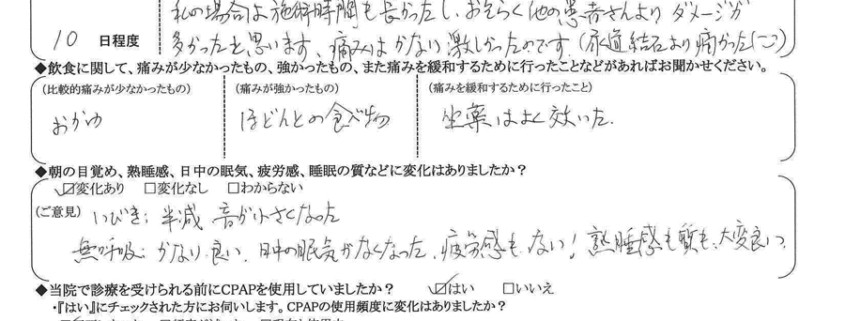 私の場合は施術時間も長かったし、おそらく他の患者さんよりダメージが
10 日程度
多かったと思います、痛みはかなり激しかったのです。(尿道結石より痛かった(ニコ))
◆飲食に関して、痛みが少なかったもの、強かったもの、また痛みを緩和するために行ったことなどがあればお聞かせください。
(比較的痛みが少なかったもの) (痛みが強かったもの) (痛みを緩和するために行ったこと)
おかゆ ほどんとの食べ物 坐薬はよく効いた.
◆朝の目覚め、熟睡感、日中の眠気、疲労感、睡眠の質などに変化はありましたか?
☑変化あり □変化なし □わからない
(ご意見) いびき: 半減 音が小さくなった
無呼吸: かなり良い、日中の眠気がなくなった、疲労感もない! 熟睡感も質も、大変良い
◆当院で診療を受けられる前にCPAPを使用していましたか? ☑はい □いいえ
・『はい』にチェックされた方にお伺いします。CPAPの使用頻度に変化はありましたか?